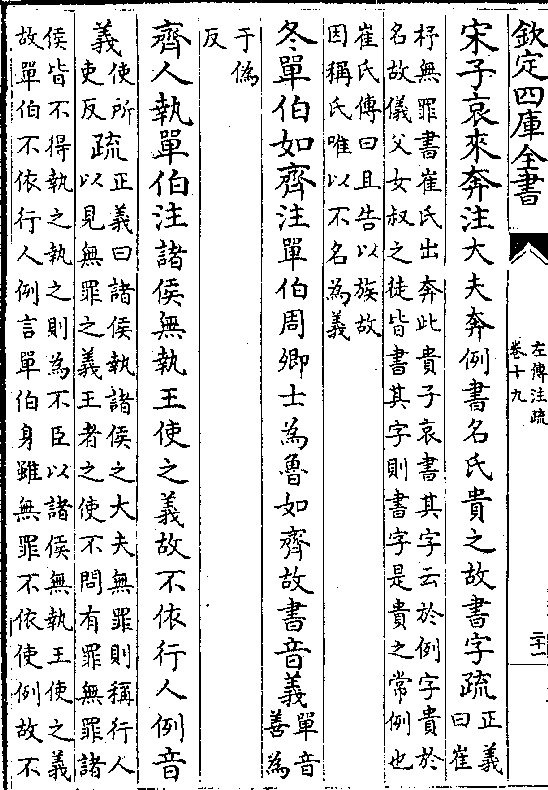 欽定四庫全書
左傳注疏
卷十九
二十一
宋子哀來奔注大夫奔例書名氏貴之故書字疏正義
曰崔
杼無罪書崔氏出奔此貴子哀書其字云於例字貴於
名故儀父女叔之徒皆書其字則書字是貴之常例也
崔氏傳曰且告以族故
因稱氏唯以不名為義
冬單伯如齊注單伯周卿士為魯如齊故書音義單音
善為
于偽
反
齊人執單伯注諸侯無執王使之義故不依行人例音
義使所
吏反疏正義曰諸侯執諸侯之大夫無罪則稱行人
以見無罪之義王者之使不問有罪無罪諸
侯皆不得執之執之則為不臣以諸侯無執王使之義
故單伯不依行人例言單伯身雖無罪不依使例故不